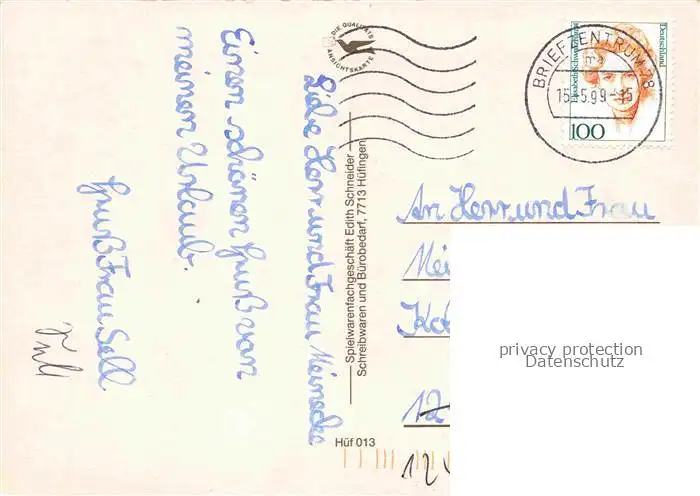 Liebe Herr und Frau Meinecke
Einen schönen Gruß von
meinen Urlaub.
Gruß Frau Sell
DIE QUALITÄTS
ANSICHTSKARTE
Spielwarenfachgeschäft Edith Schneider
Schreibwaren und Bürobedarf, 7713 Hüfingen
Hüf 013
Deutschland
100
BRIEFZENTRUM 78
15.-5.99-15
An Herr und Frau
Mei
12
12
privacy protection
Datenschutz